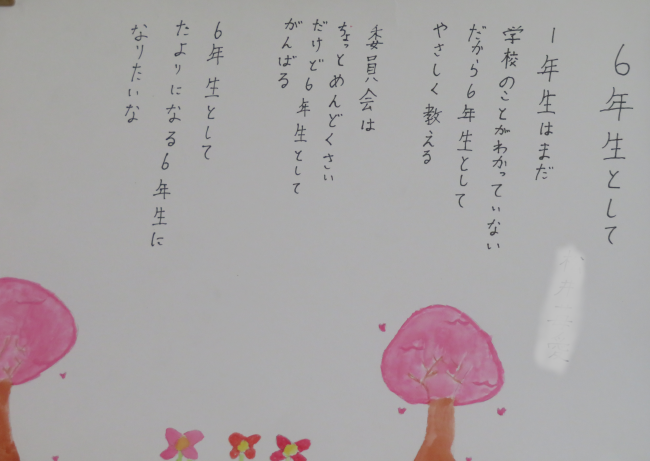 6年生として
1年生はまだ
学校のことがわかっていない
だから6年生として
やさしく教える
委員会は
ちょっとめんどくさい
だけど6年生として
がんばる
6年生として
たよりになる6年生に
なりたいな